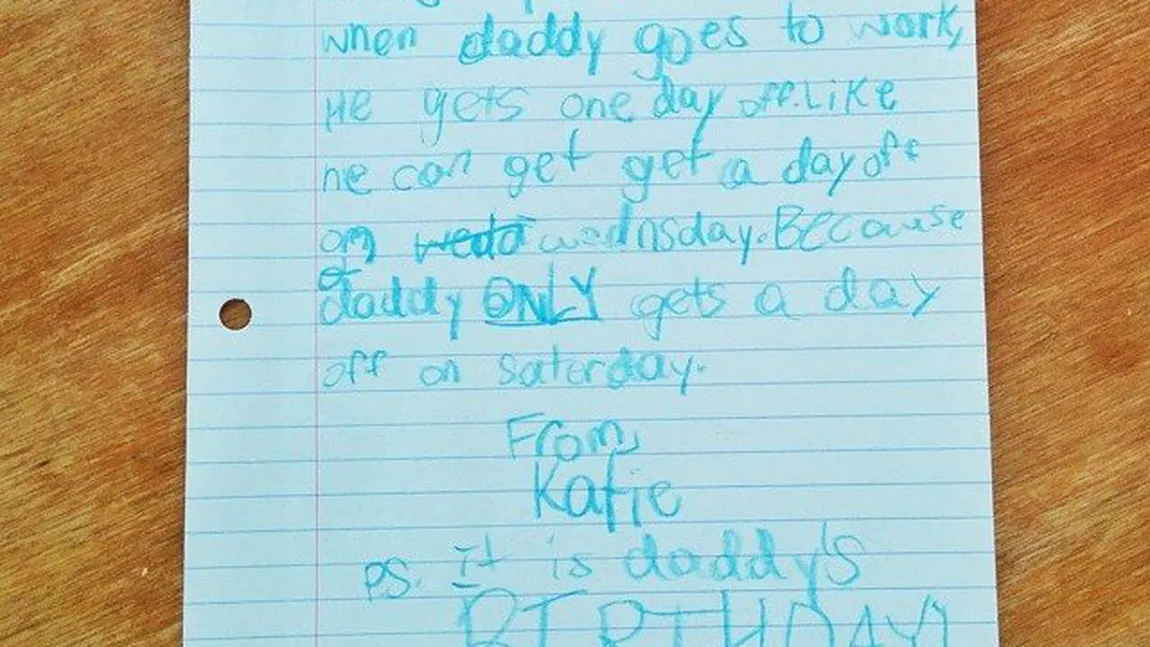 when daddy goes to work,
He gets one day off. Like
he can get get a day off
on wednsday. Because
daddy ONLY gets a day
off on saterday.
From,
Katie
PS. It is daddy's
BIRTHDAY!